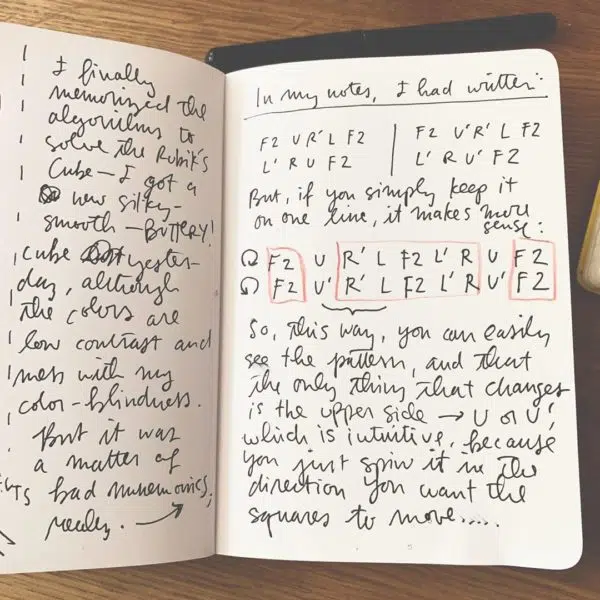 I finally
memorized the
algorithms to
solve the Rubik's
Cube — I got a
new silky-
smooth — BUTTERY!
cube yester-
day, although
the colors are
low contrast and
mess with my
color-blindness.
But it was
a matter of
bad mnemonics,
really. →
In my notes, I had written:
F2 U R' L F2 | F2 U' R' L F2
L' R U F2 | L' R U' F2
But, if you simply keep it
on one line, it makes more
sense:
↻ F2 U R' L F2 L' R U F2
↺ F2 U' R' L F2 L' R U' F2
So, this way, you can easily
see the pattern, and that
the only thing that changes
is the upper side → U or U',
which is intuitive, because
you just spin it in the
direction you want the
squares to move.....